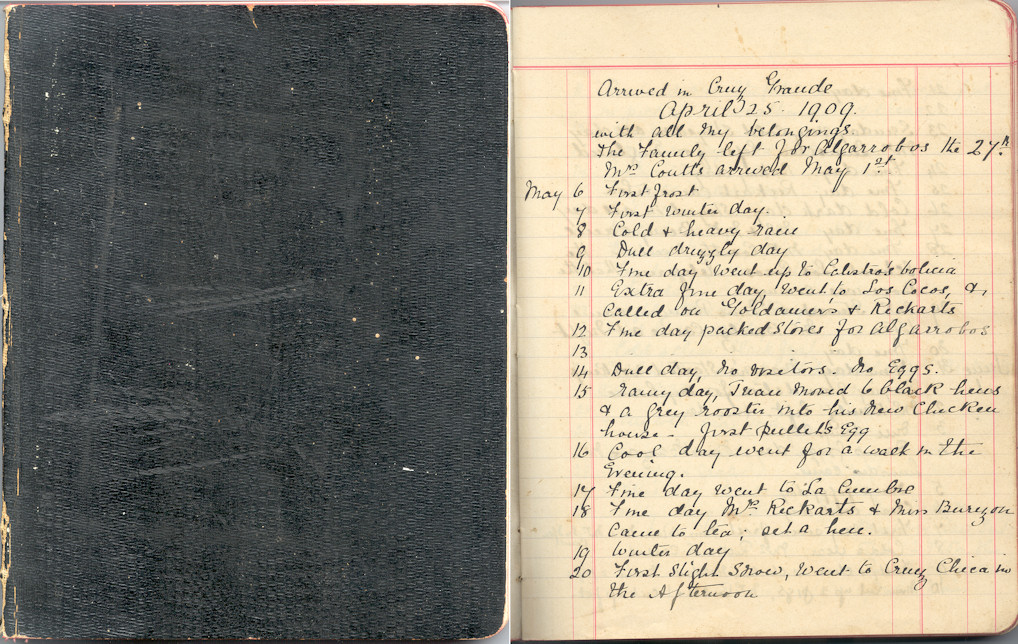 Arrived in Cruz Grande
April 25. 1909.
with all my belongings
The Family left for Algarrobos the 27th
Mrs Coutts arrived May 1st
May 6 First frost
7 First winter day.
8 Cold & heavy rain
9 Dull drizzly day
10 Fine day went up to
11 Extra fine day, went to Los Cocos, &
called on Goldamers & Rickarts
12 Fine day packed stores for Algarrobos
13
14 Dull day, No visitors. No Eggs.
15 rainy day, Juan moved 6 black hens
& a grey rooster into his new Chicken
house - first pullets Egg
16 Cool day went for a walk in the
Evening.
17 Fine day went to La Cumbre
18 Fine day Mrs Rickarts & Miss
came to tea; set a hen.
19 winter day
20 First slight Snow, went to Cruz Chica in
the Afternoon